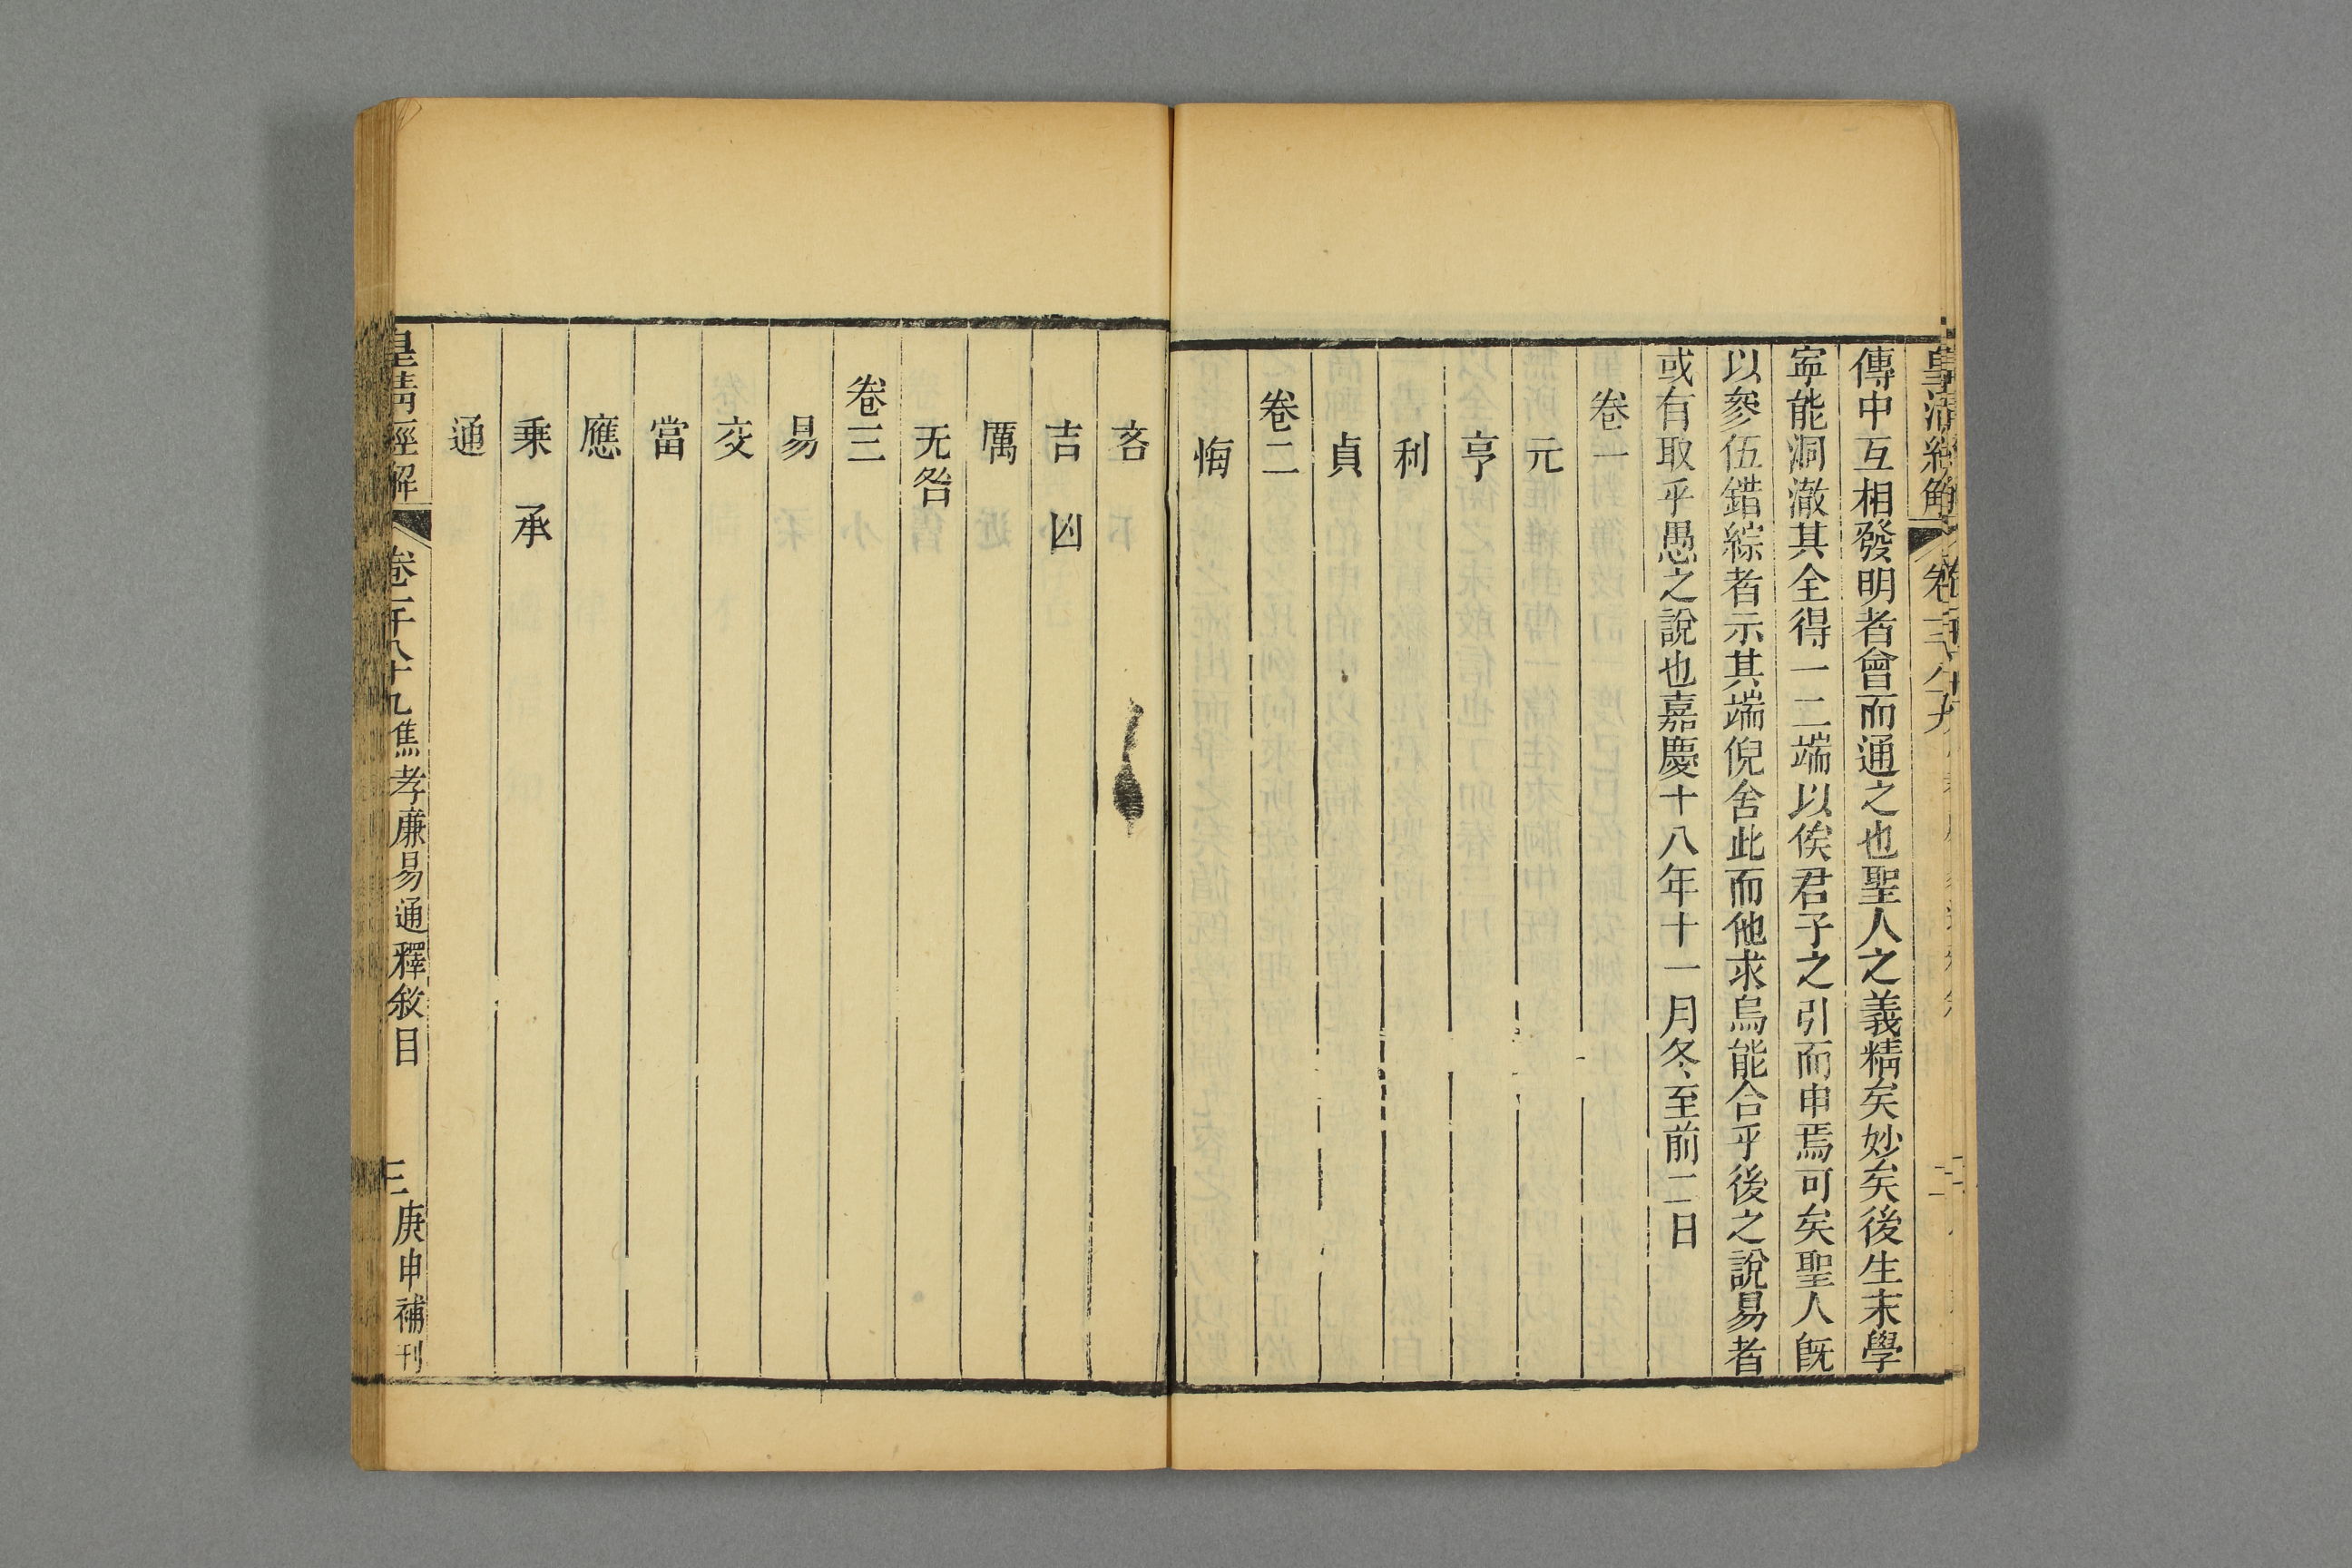 傳中互相發明者會而通之也聖人之義精矣妙矣後生末學
寍能洞澈其全得一二端以俟君子之引而申焉可矣聖人旣
以參伍錯綜者示其端倪舍此而他求烏能合乎後之說易者
或有取乎愚之說也嘉慶十八年十一月冬至前二日
卷一
元
亨
利
貞
卷二
悔
吝
吉　凶
厲
无咎
卷三
易
交
當
應
乘　承
通
皇淸經解　卷一千八十九　焦孝廉易通釋敘目　三　庚申補刊